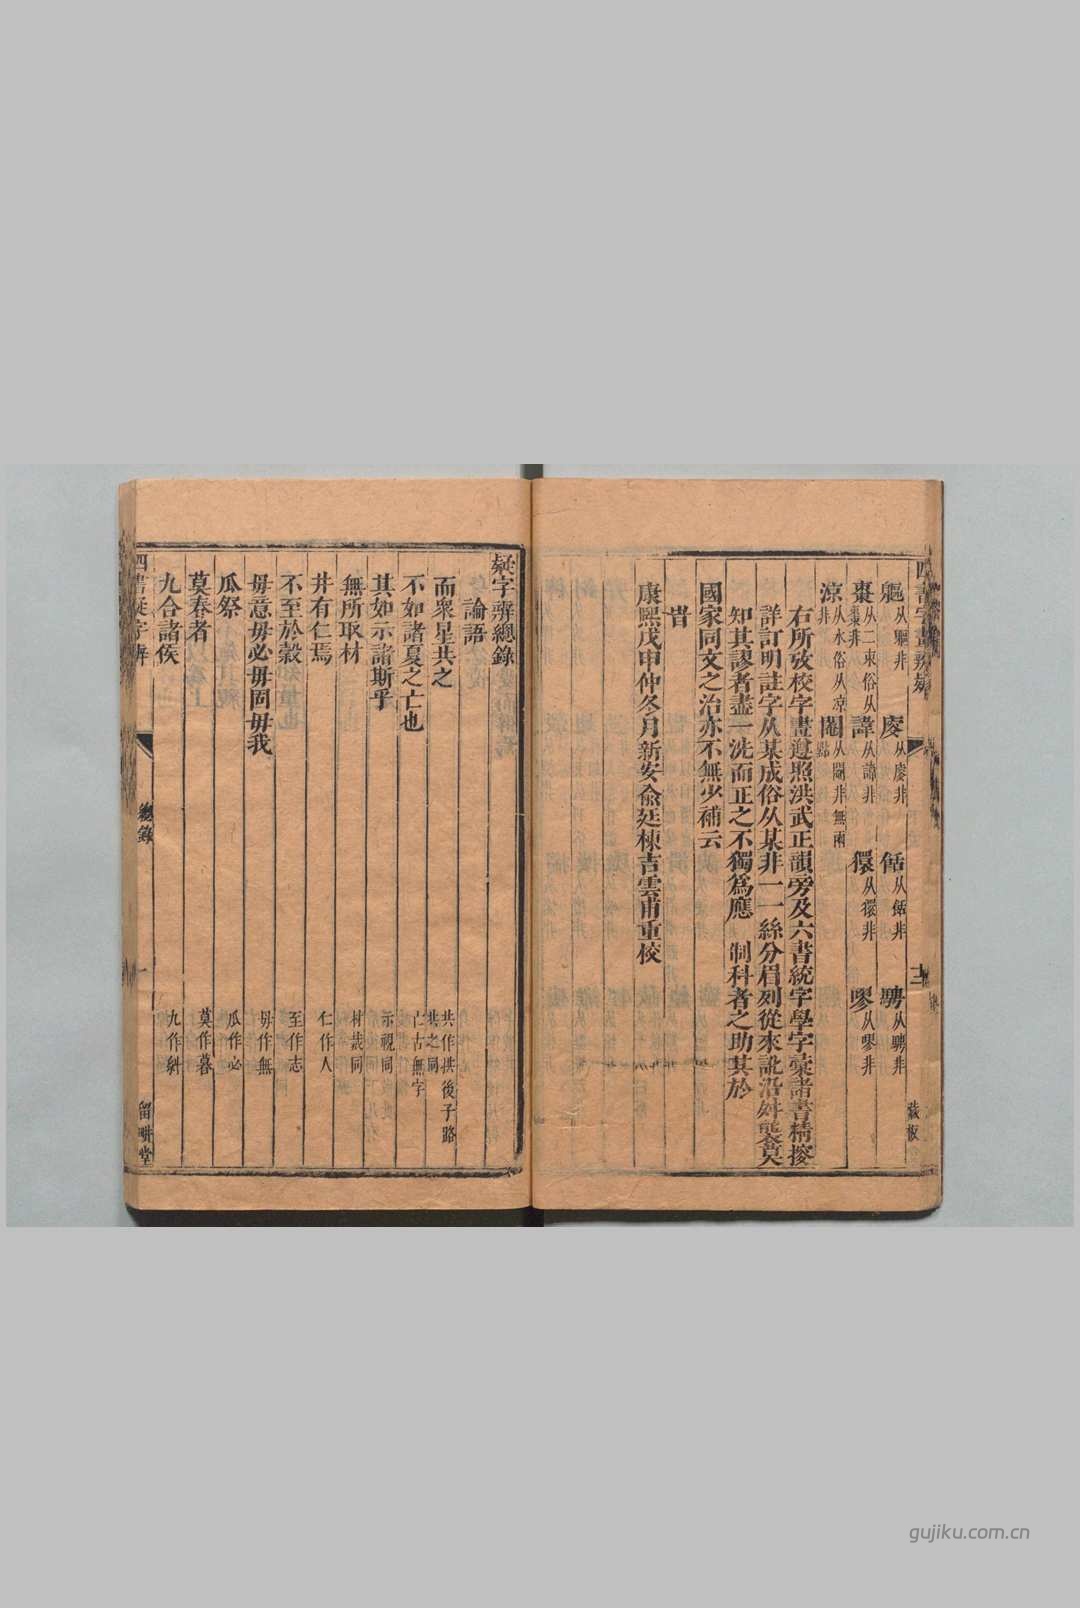 四書字畫辨疑
從非
棗从二朿俗从棗非
諱从諱非
獧从獧非
涼从水俗从凉非
閹从閹非無兩點
右所攷校字畫遵照洪武正韻旁及六書統字學字彙諸書精擦
詳訂明註字从某成俗从某非一一絲分眉列從來訛沿舛襲莫
知其謬者盡一洗而正之不獨爲應 制科者之助其於
國家同文之治亦不無少補云
旹
康熙戊申仲冬月新安兪廷棟吉雲甫重校
藏板
疑字辨總錄
論語
而衆星共之 共作拱後子路共之同
不如諸夏之亡也 亡古無字
其如示諸斯乎 示視同
無所取材 材裁同
井有仁焉 仁作人
不至於穀 至作志
毋意毋必毋固毋我 毋作無
瓜祭 瓜作必
莫春者 莫作暮
九合諸侯 九作糾
四書疑字辨
總錄
一
留畊堂
gujiku.com.cn